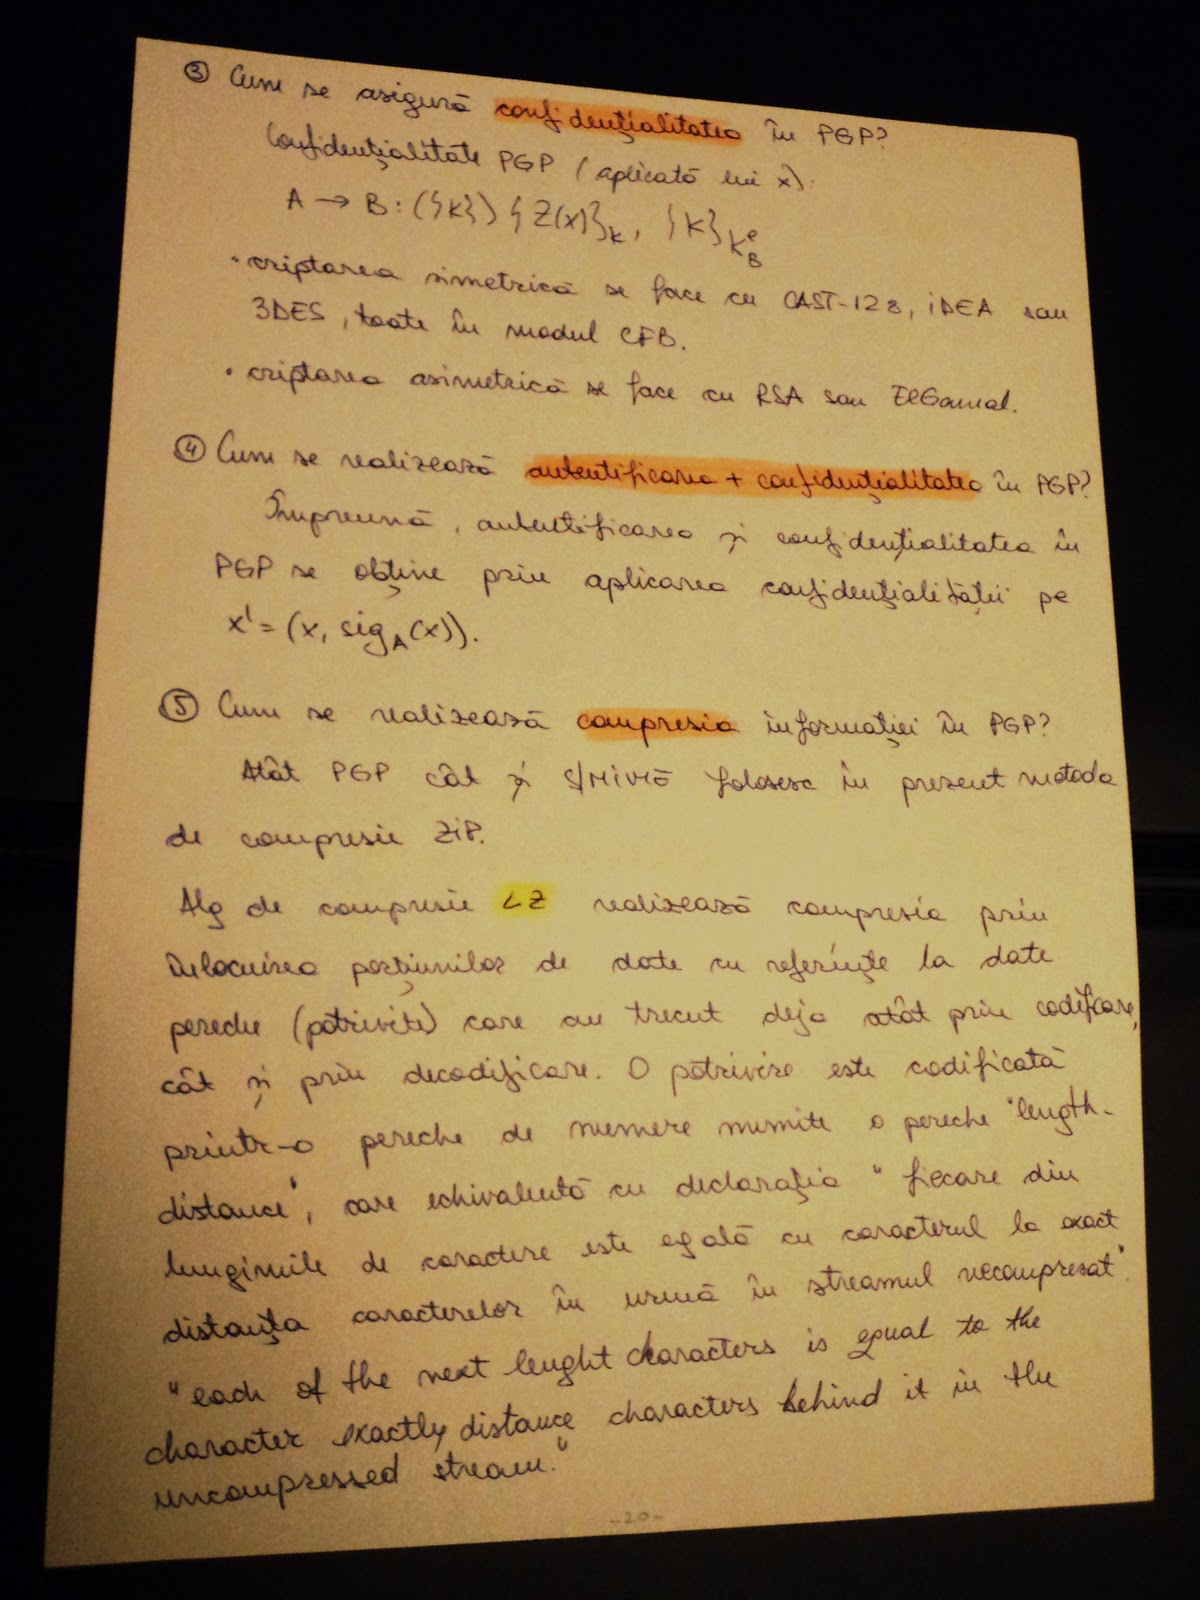 ③ Cum se asigură confidențialitatea în PGP?
Confidențialitate PGP (aplicată lui x):
A → B: ({K}) {Z(x)}_K, {K}_{K_B^e}
• criptarea simetrică se face cu CAST-128, IDEA sau
3DES, toate în modul CFB.
• criptarea asimetrică se face cu RSA sau ElGamal.
④ Cum se realizează autentificarea + confidențialitatea în PGP?
Împreună, autentificarea și confidențialitatea în
PGP se obține prin aplicarea confidențialității pe
x' = (x, sig_A(x)).
⑤ Cum se realizează compresia informației în PGP?
Atât PGP cât și S/MIME folosesc în prezent metoda
de compresie ZIP.
Alg de compresie LZ realizează compresia prin
înlocuirea porțiunilor de date cu referințe la date
pereche (potrivite) care au trecut deja atât prin codificare,
cât și prin decodificare. O potrivire este codificată
printr-o pereche de numere numite o pereche "length-
distance", care echivalentă cu declarația "fiecare din
lungimile de caractere este egală cu caracterul la exact
distanța caracterelor în urmă în streamul necompresat".
"each of the next lenght characters is equal to the
character exactly distance characters behind it in the
uncompressed stream."
-20-